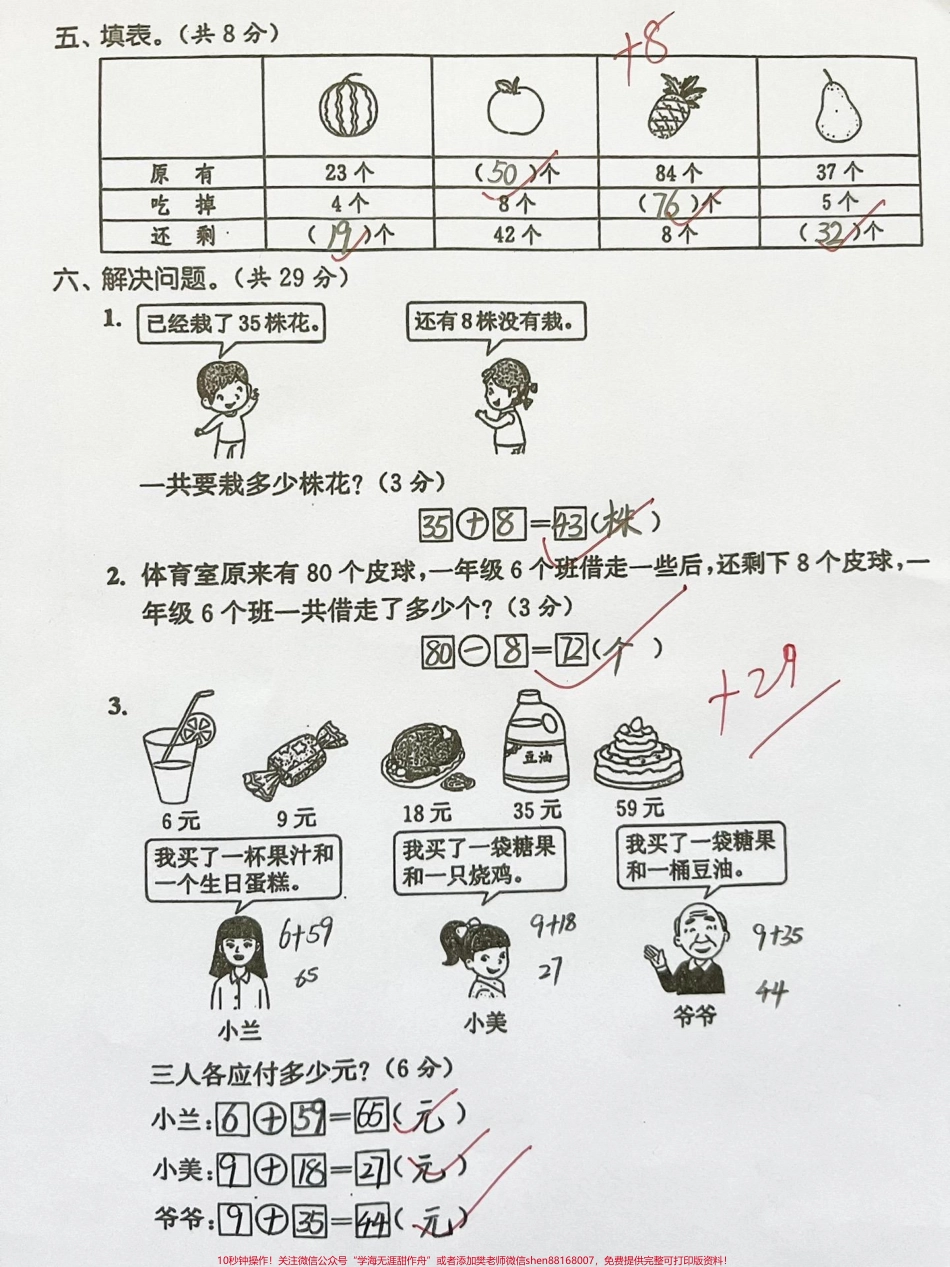 五、填表。（共 8 分） +8
原 有 23 个 （50）个 84 个 37 个
吃 掉 4 个 8 个 （76）个 5 个
还 剩 （19）个 42 个 8 个 （32）个
六、解决问题。（共 29 分）
1. 已经栽了 35 株花。 还有 8 株没有栽。
一共要栽多少株花？（3 分）
35 + 8 = 43（株）
2. 体育室原来有 80 个皮球，一年级 6 个班借走一些后，还剩下 8 个皮球，一
年级 6 个班一共借走了多少个？（3 分）
80 - 8 = 72（个）
+29
3.
豆油
6 元 9 元 18 元 35 元 59 元
我买了一杯果汁和
一个生日蛋糕。
我买了一袋糖果
和一只烧鸡。
我买了一袋糖果
和一桶豆油。
6+59 9+18 9+35
65 27 44
小兰 小美 爷爷
三人各应付多少元？（6 分）
小兰：6 + 59 = 65（元）
小美：9 + 18 = 27（元）
爷爷：9 + 35 = 44（元）
10秒钟操作！关注微信公众号“学海无涯甜作舟”或者添加樊老师微信shen88168007，免费提供完整可打印版资料！